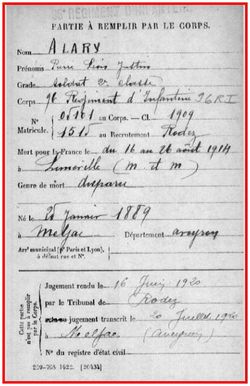 96e RÉGIMENT D'INFANTERIE
PARTIE À REMPLIR PAR LE CORPS.
Nom ALARY
Prénoms Pierre Louis Justin
Grade Soldat 2e classe
Corps 96 Régiment d'Infanterie 96 R I
N° au Corps. — Cl. 1909
Matricule. 1515 au Recrutement Rodez
Mort pour la France le du 16 au 20 août 1914
à Lunéville (M et M)
Genre de mort disparu
Né le 25 Janvier 1889
à Meljac Département Aveyron
Arr' municipal (p' Paris et Lyon),
à défaut rue et N°.
Cette partie
n'est pas à remplir
par le Corps.
Jugement rendu le 16 Juin 1920
par le Tribunal de Rodez
jugement transcrit le 20 Juillet 1920
à Meljac (Aveyron)
N° du registre d'état civil
[26434]